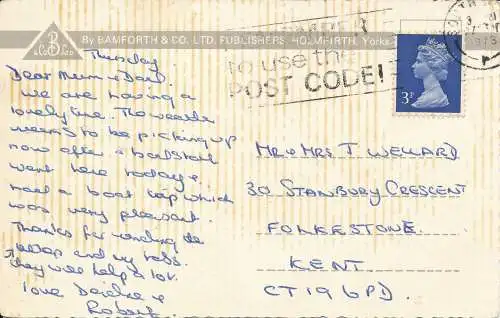 By BAMFORTH & CO. LTD. PUBLISHERS, HOLMFIRTH, Yorks
B
& Co Ltd
to use the
POST CODE!
1973
3P
Tuesday
Dear Mum & Dad.
We are having a
lovely time. The weather
seems to be picking up
now after a bad start
went here today &
had a boat trip which
was very pleasant.
Thanks for sending de
and my
they will help a lot.
love Deirdre &
Robert.
MR & MRS T WELLARD
30 STANBURY CRESCENT
FOLKESTONE.
KENT
CT19 6PD.